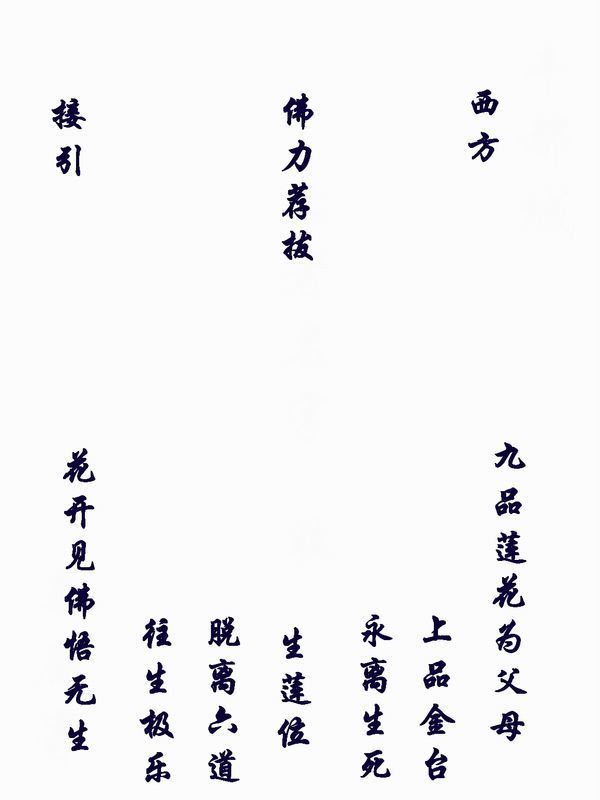 西方
九品莲花为父母
上品金台
永离生死
佛力荐拔
生莲位
脱离六道
往生极乐
接引
花开见佛悟无生